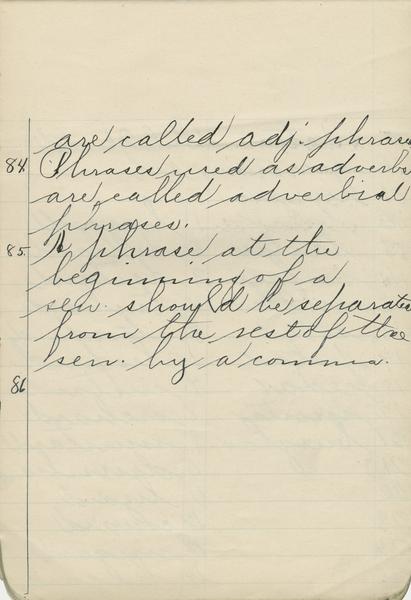 are called adj. phrases
84 Phrases used as adverbs
are called adverbial
phrases.
85. A phrase at the
beginning of a
sen. should be separate
from the rest of the
sen. by a comma.
86